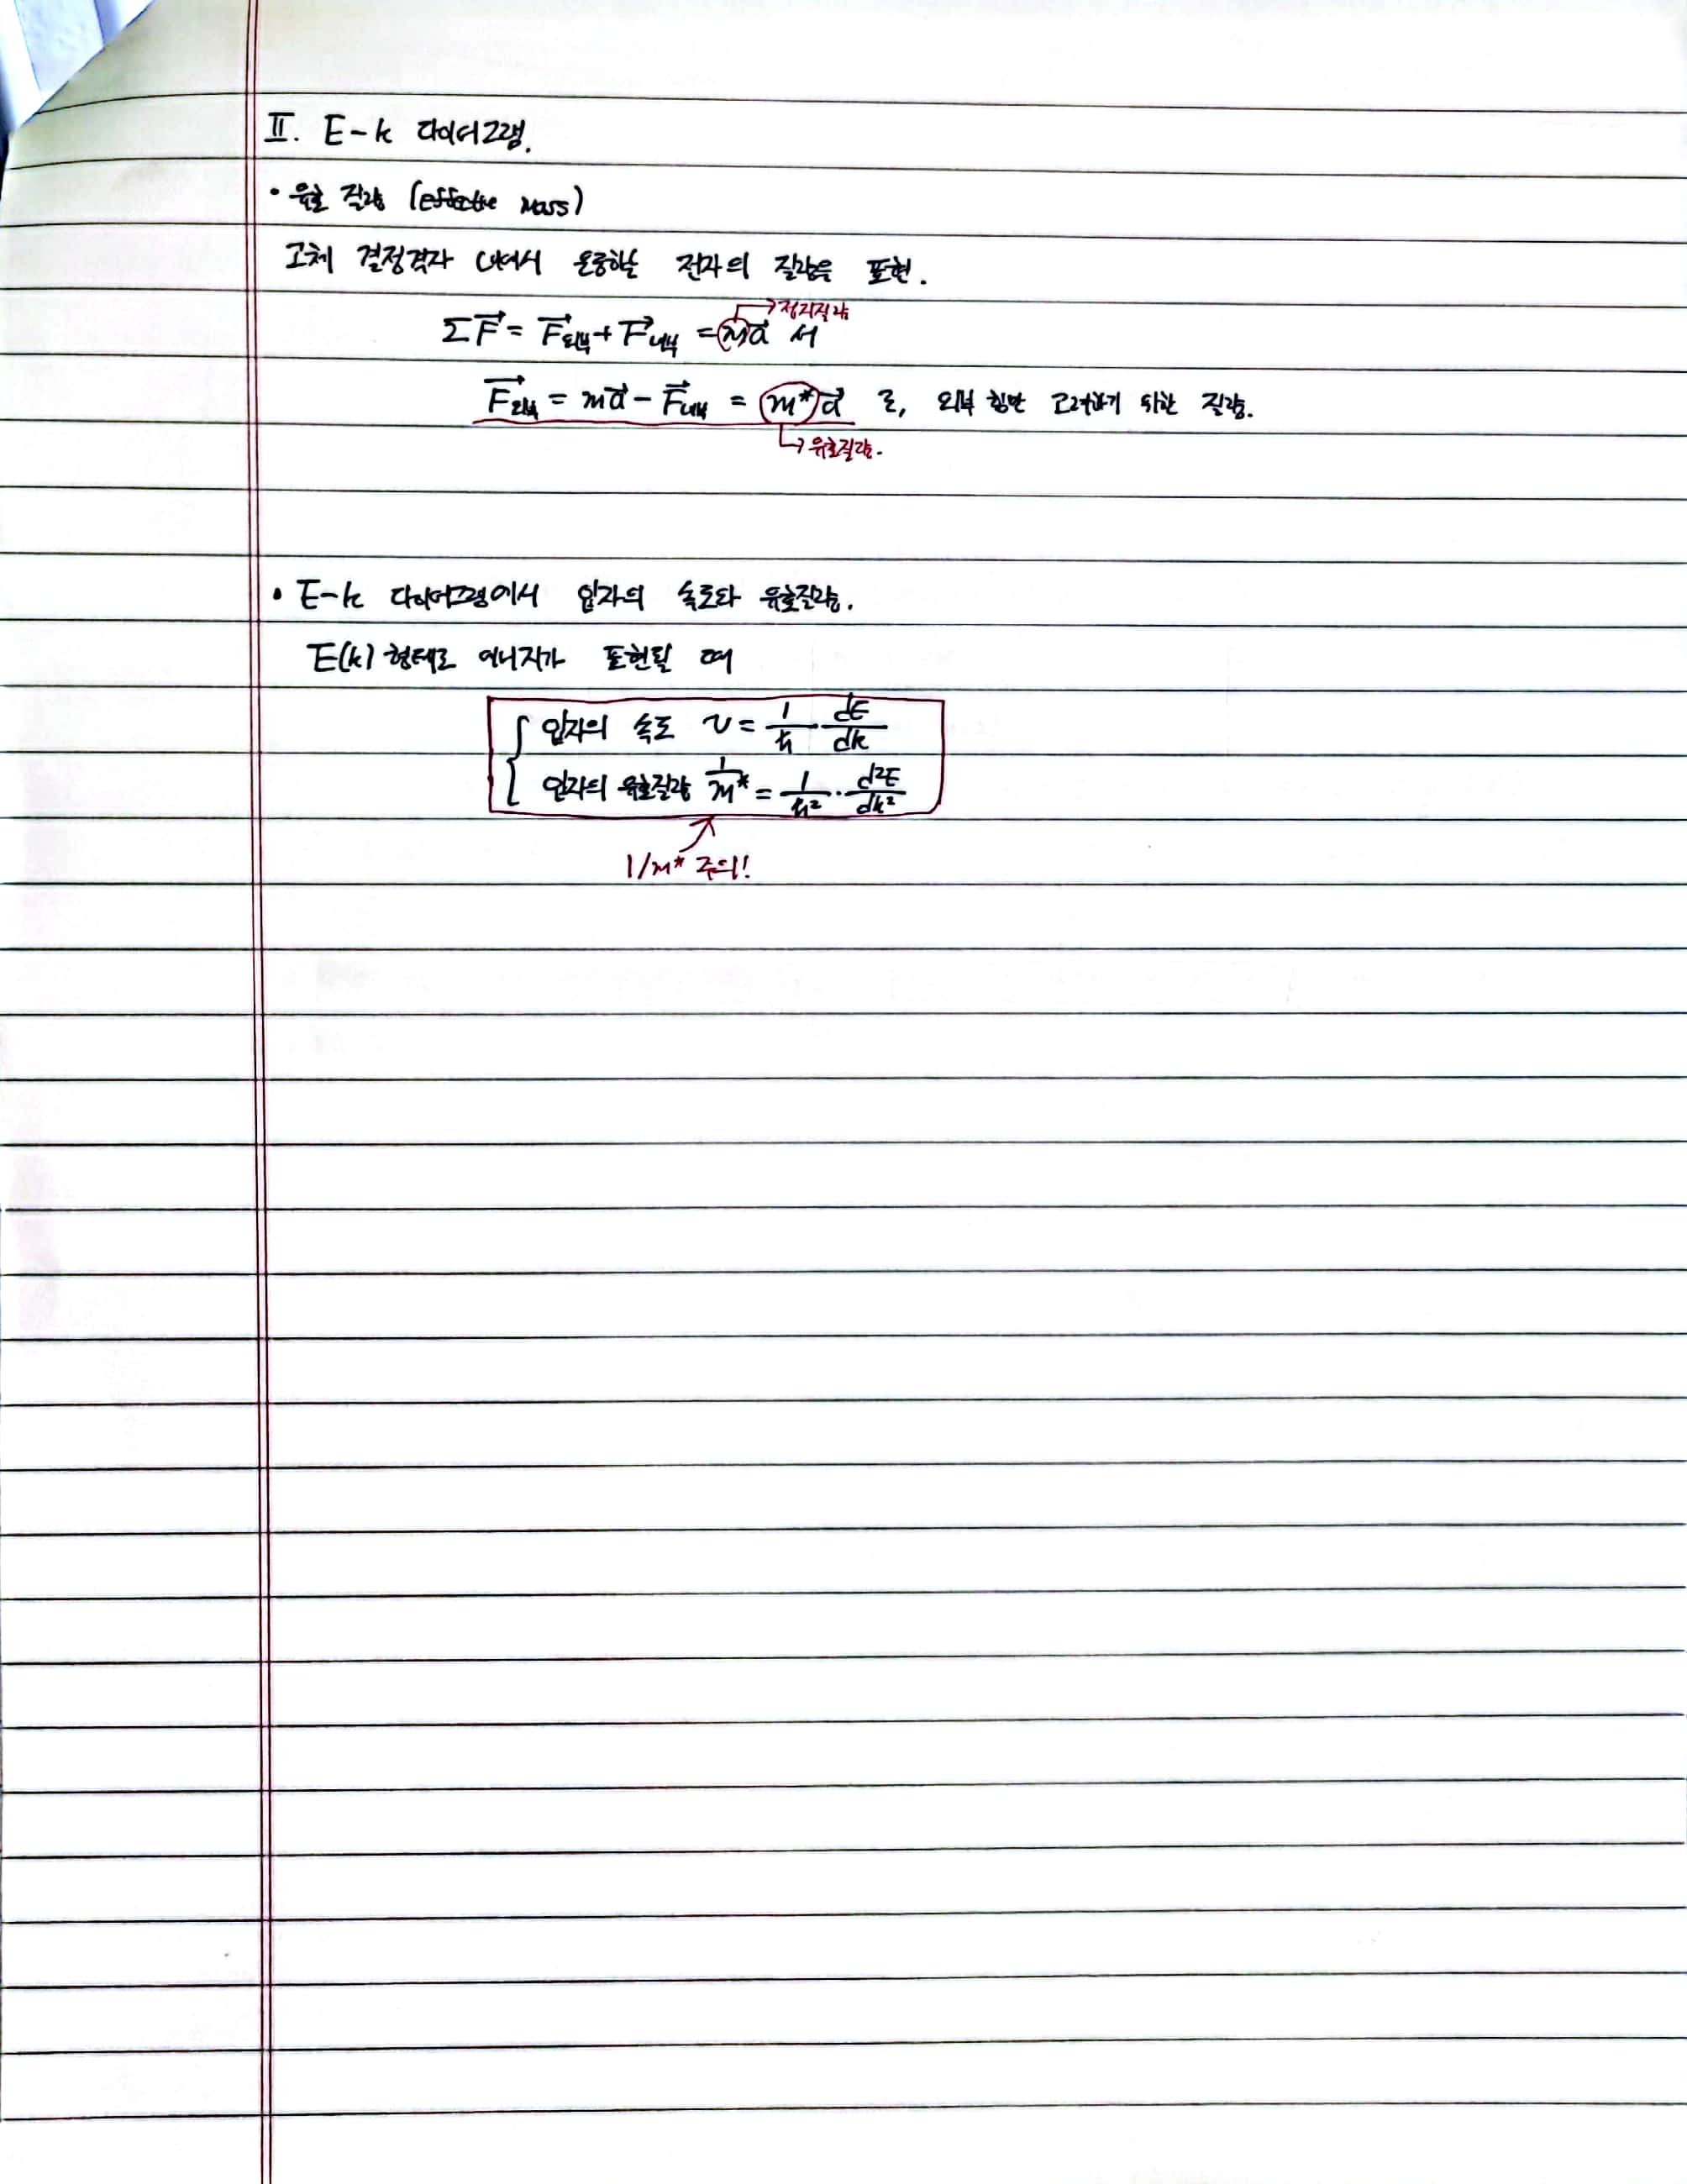 II. E-k 다이어그램.
• 유효 질량 (effective mass)
고체 결정격자 내에서 운동하는 전자의 질량을 표현.
→정지질량
ΣF⃗ = F⃗외부 + F⃗내부 = ma⃗ 서
F⃗외부 = ma⃗ - F⃗내부 = m*a⃗ 로, 외부 힘만 고려하기 위한 질량.
↳ 유효질량.
• E-k 다이어그램에서 입자의 속도와 유효질량.
E(k) 형태로 에너지가 표현될 때
입자의 속도 v = 1/ħ · dE/dk
입자의 유효질량 1/m* = 1/ħ² · d²E/dk²
1/m* 주의!